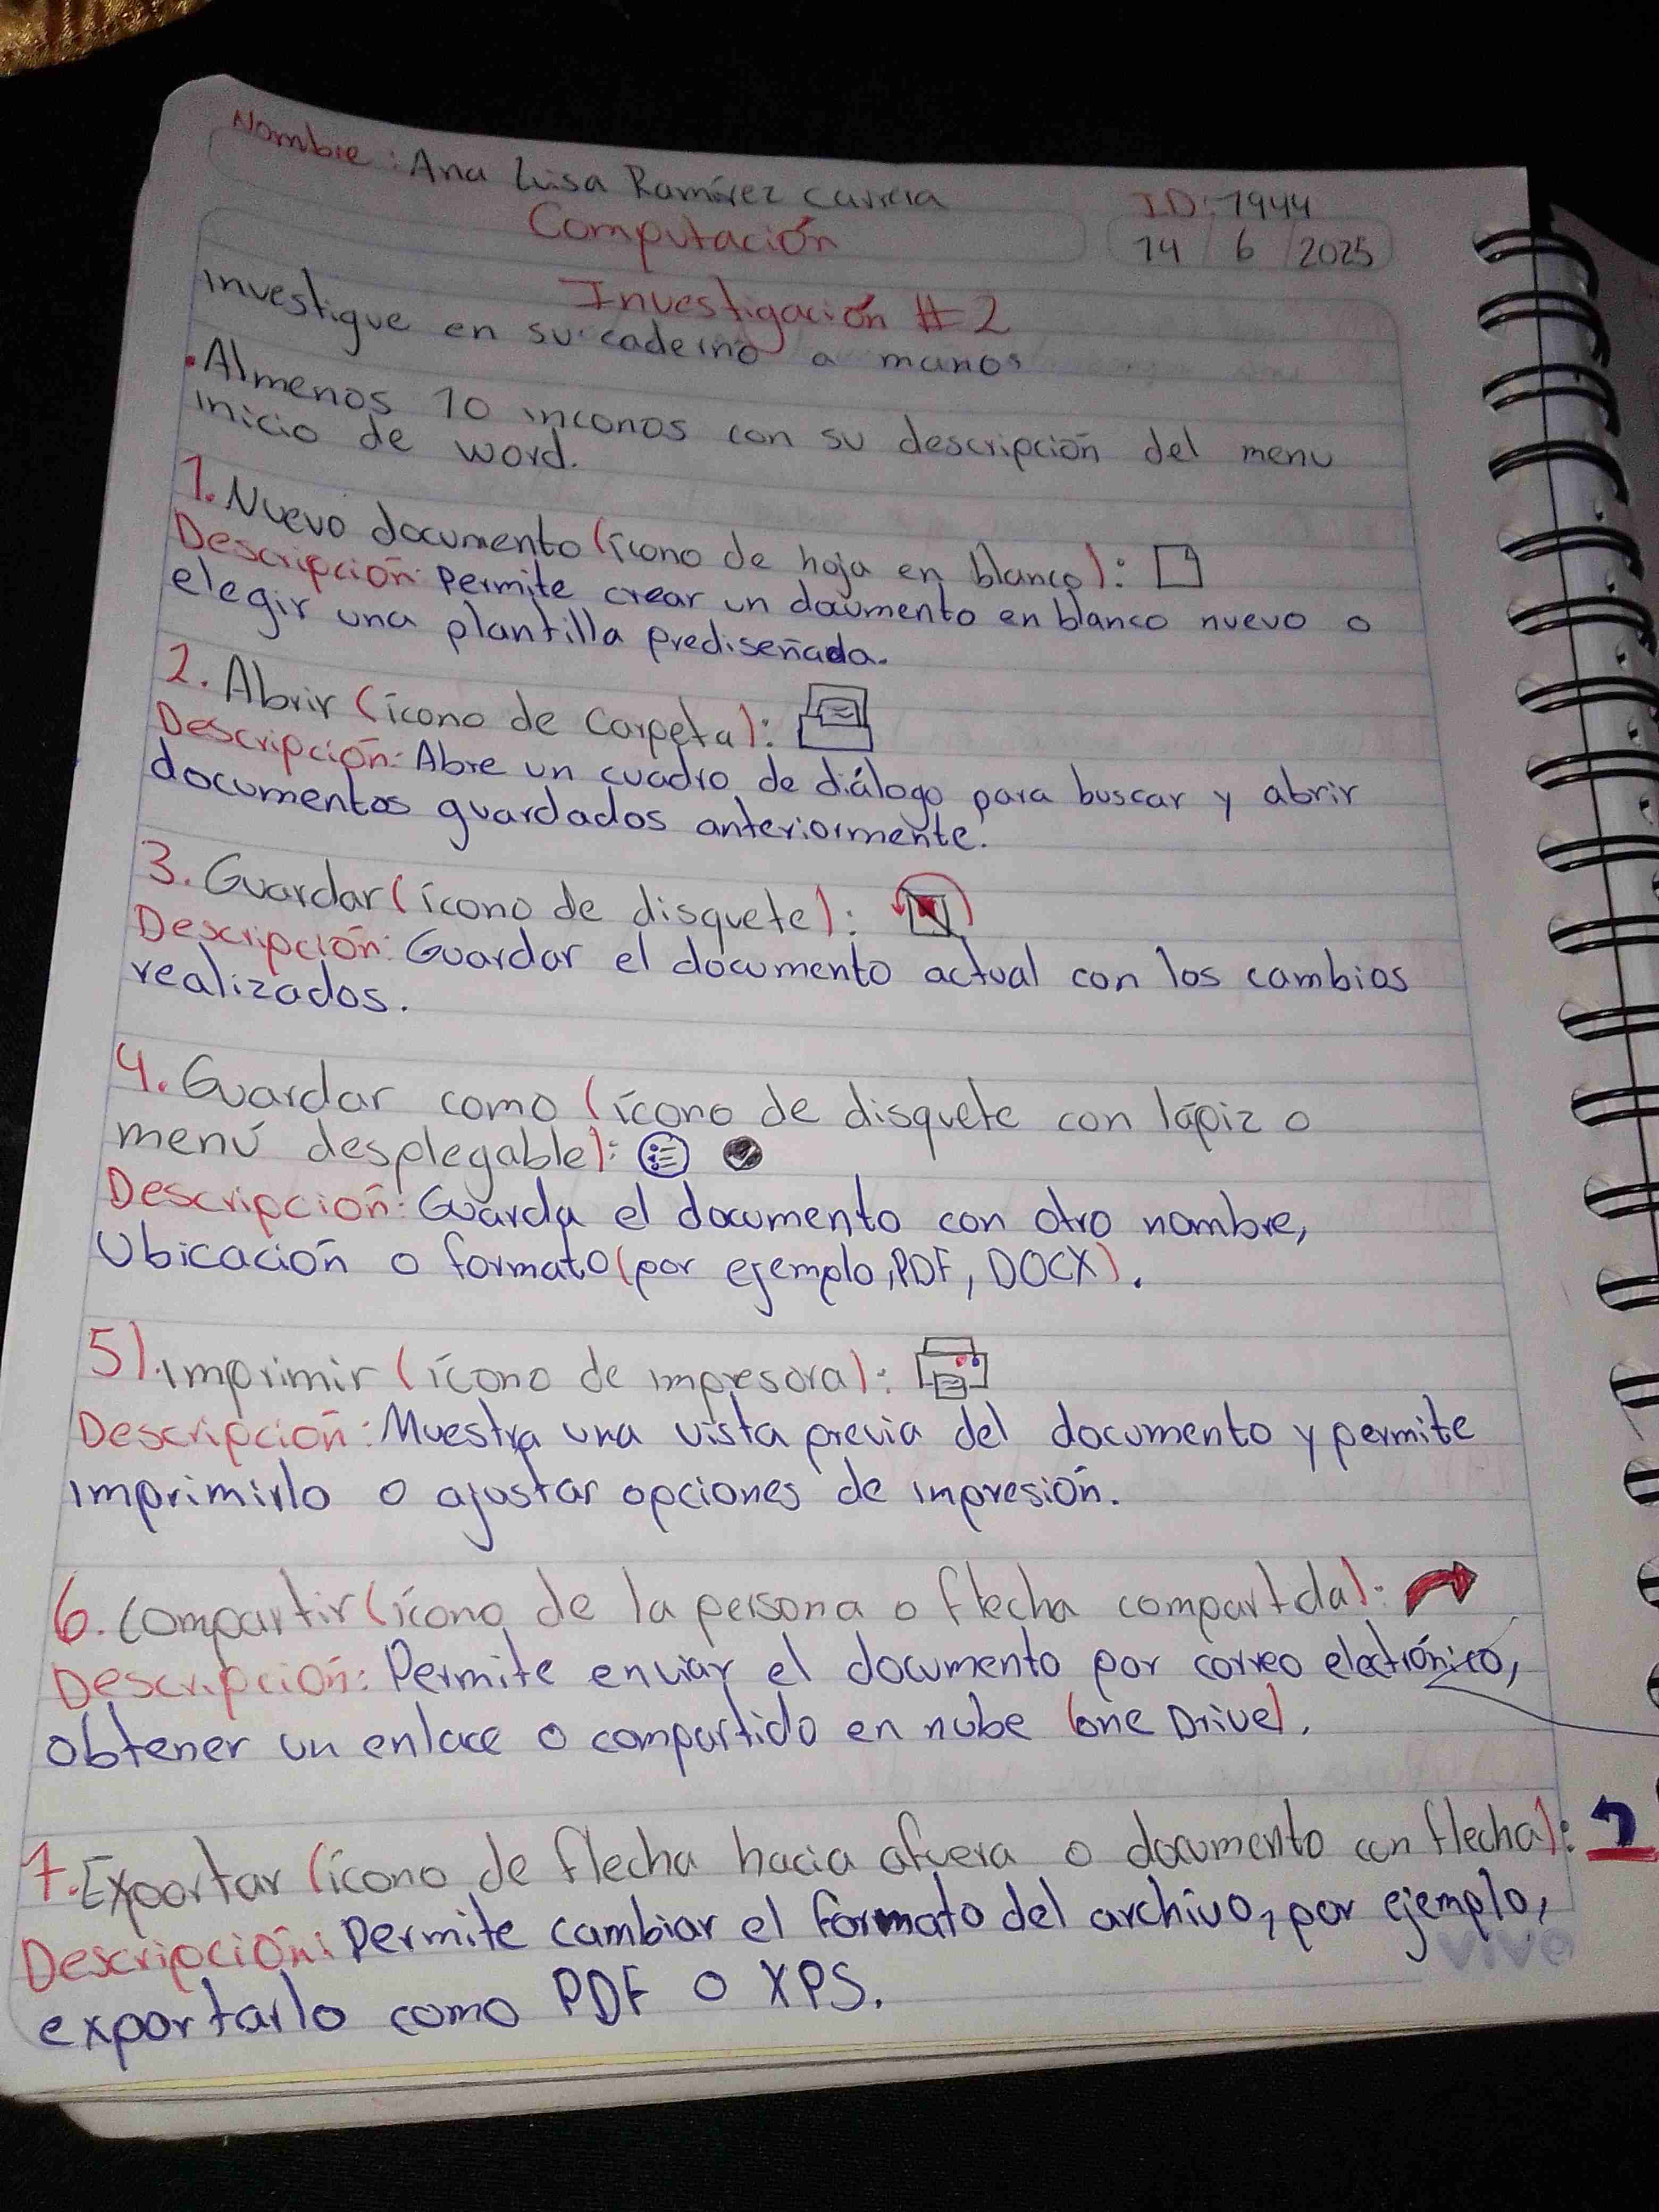 Nombre: Ana Luisa Ramírez Carrera
ID: 1944
Computación
14 / 6 / 2025
Investigación #2
Investigue en su caderno a manos
• Almenos 10 inconos con su descripción del menu
inicio de word.
1. Nuevo documento (ícono de hoja en blanco):
Descripción: Permite crear un documento en blanco nuevo o
elegir una plantilla prediseñada.
2. Abrir (ícono de Carpeta):
Descripción: Abre un cuadro de diálogo para buscar y abrir
documentos guardados anteriormente.
3. Guardar (ícono de disquete):
Descripción: Guardar el documento actual con los cambios
realizados.
4. Guardar como (ícono de disquete con lápiz o
menú desplegable):
Descripción: Guarda el documento con otro nombre,
Ubicación o formato (por ejemplo, PDF, DOCX).
5). Imprimir (ícono de impresora):
Descripción: Muestra una vista previa del documento y permite
imprimirlo o ajustar opciones de impresión.
6. Compartir (ícono de la persona o flecha compartda):
Descripción: Permite enviar el documento por correo electrónico,
obtener un enlace o compartido en nube (one Drive).
7. Exportar (ícono de flecha hacia afuera o documento con flecha):
Descripción: Permite cambiar el formato del archivo, por ejemplo,
exportarlo como PDF o XPS.
vivo